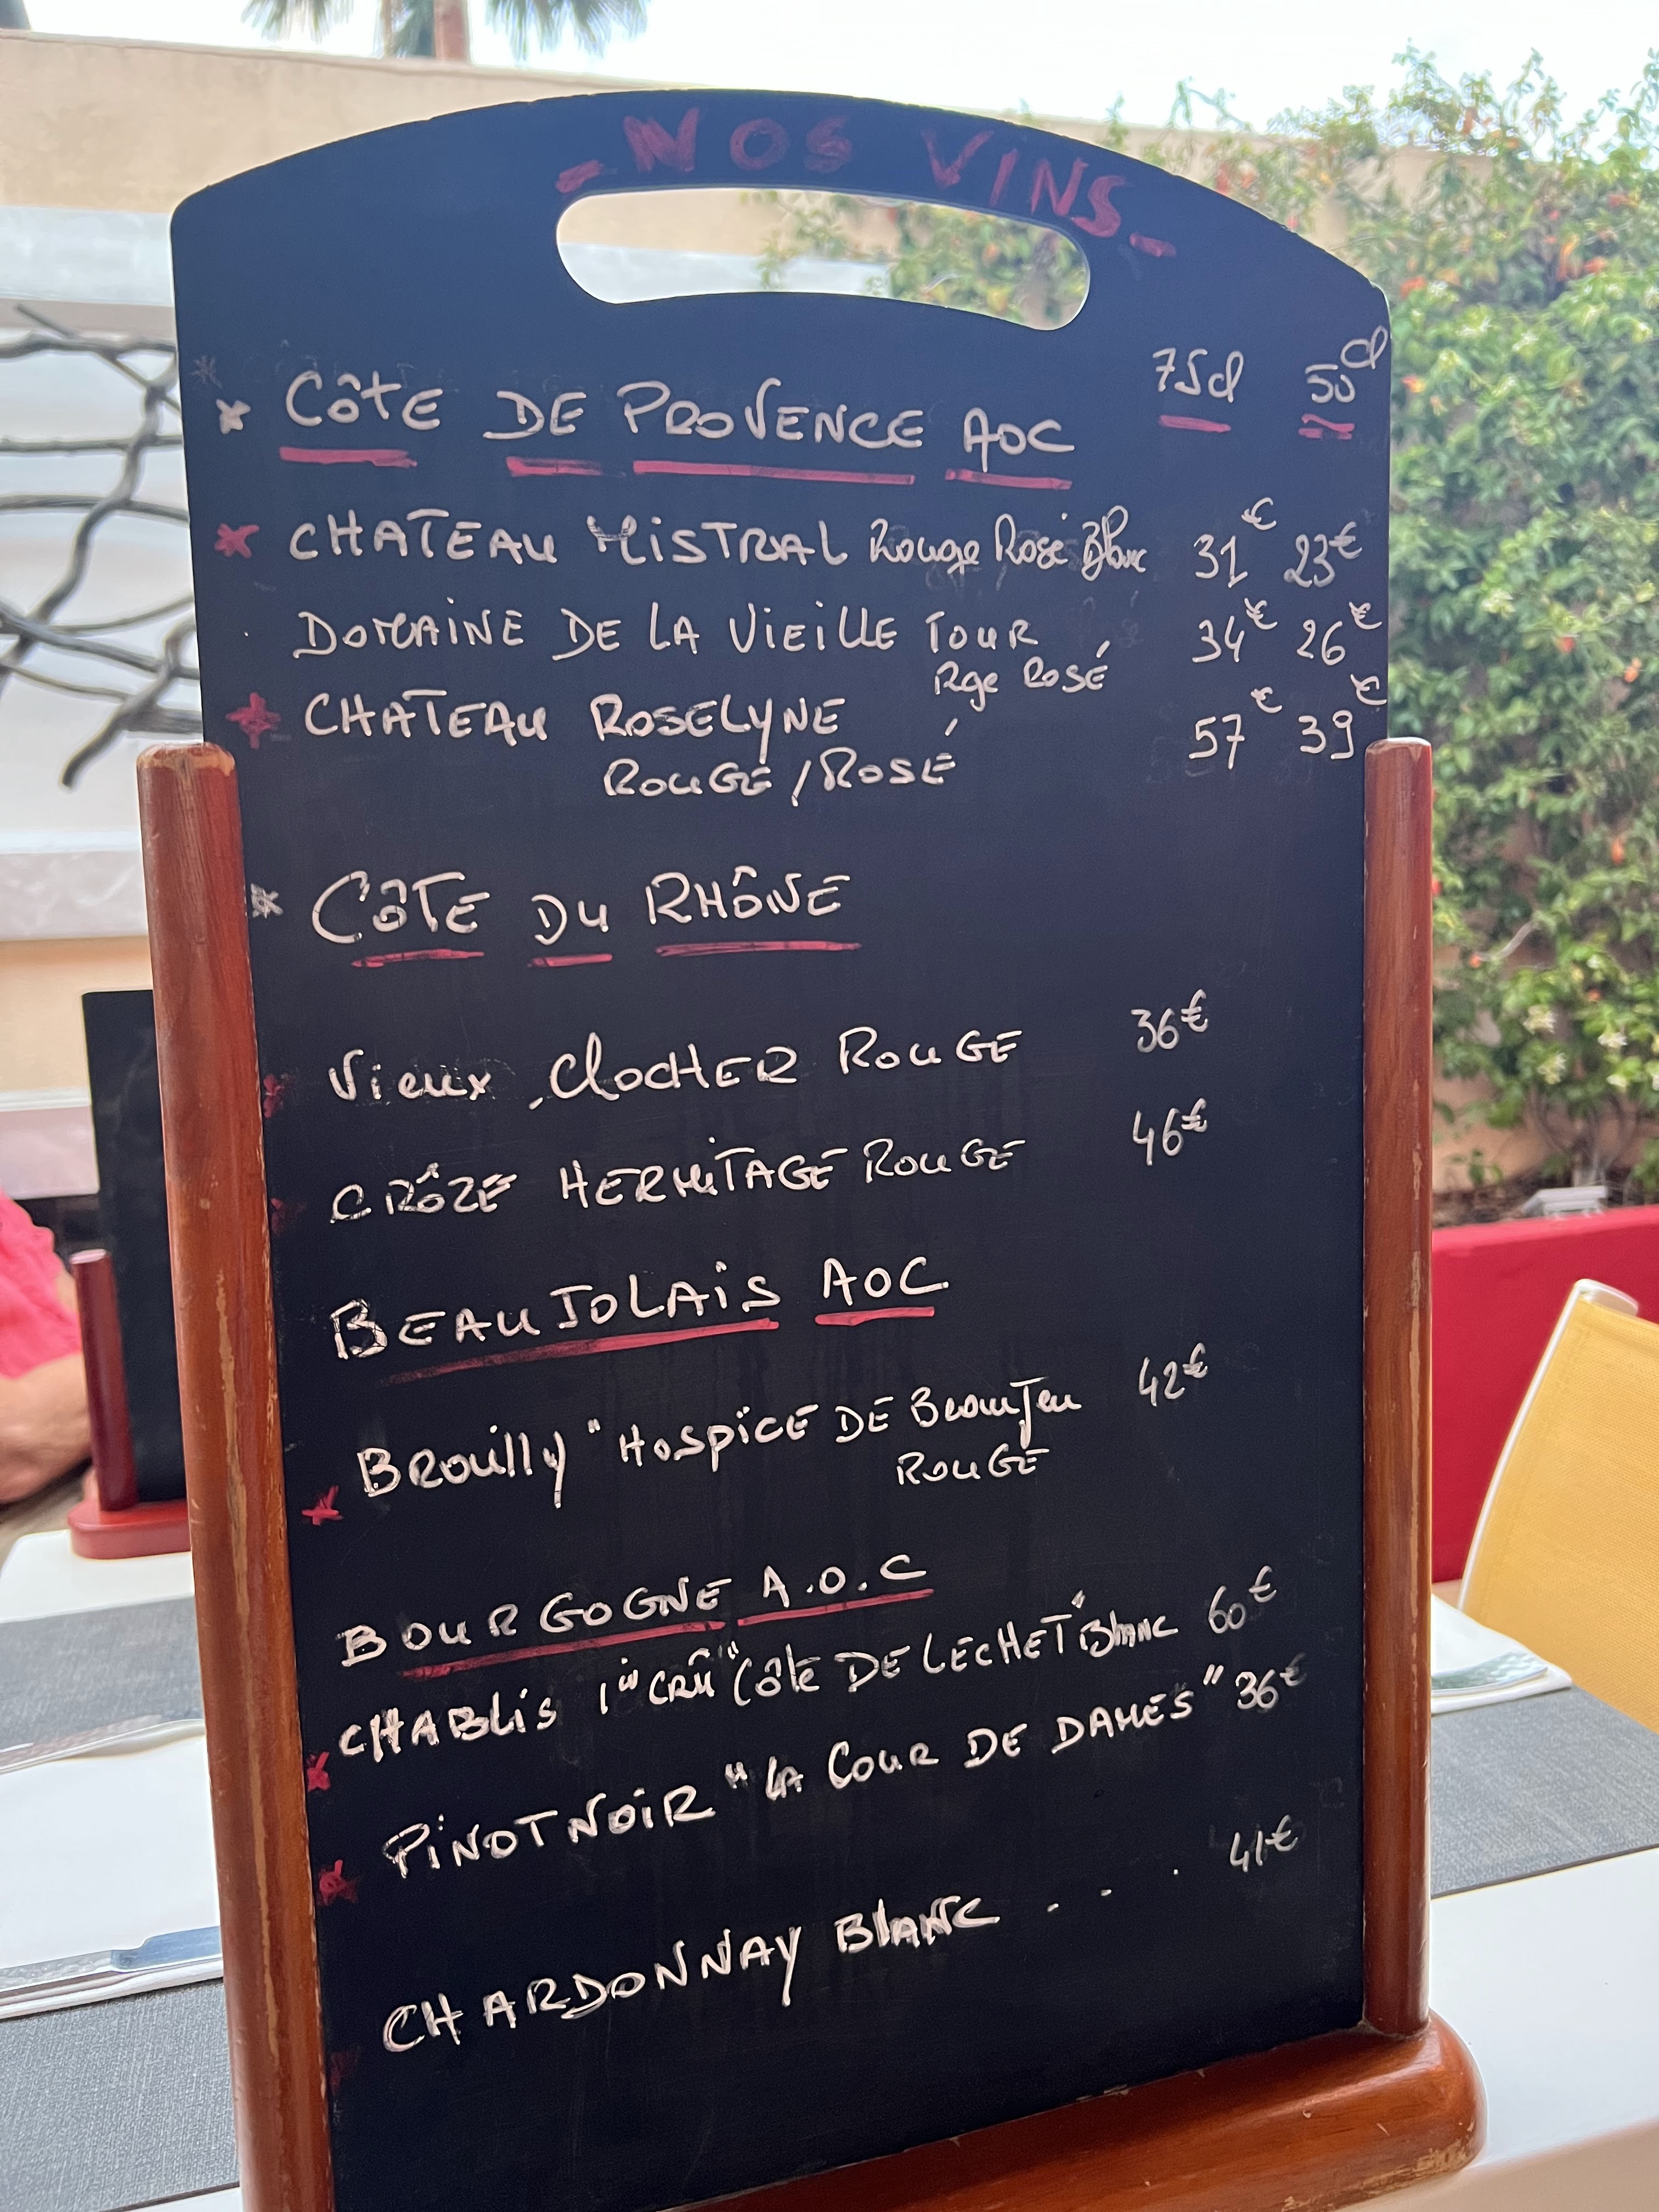 - NOS VINS -
75cl 50cl
* CÔTE DE PROVENCE AOC
* CHATEAU MISTRAL Rouge Rosé Blanc 31€ 23€
DOMAINE DE LA VIEILLE TOUR 34€ 26€
Rge ROSÉ
* CHATEAU ROSELYNE 57€ 39€
ROUGE / ROSÉ
* CÔTE DU RHÔNE
Vieux CLOCHER ROUGE 36€
CRÔZE HERMITAGE ROUGE 46€
BEAUJOLAIS AOC
* BROUILLY "HOSPICE DE BEAUJEU 42€
ROUGE
BOURGOGNE A.O.C
* CHABLIS 1er CRÛ "Côte DE LECHET" Blanc 60€
* PINOT NOIR "LA COUR DE DAMES" 36€
CHARDONNAY BLANC . . . 41€